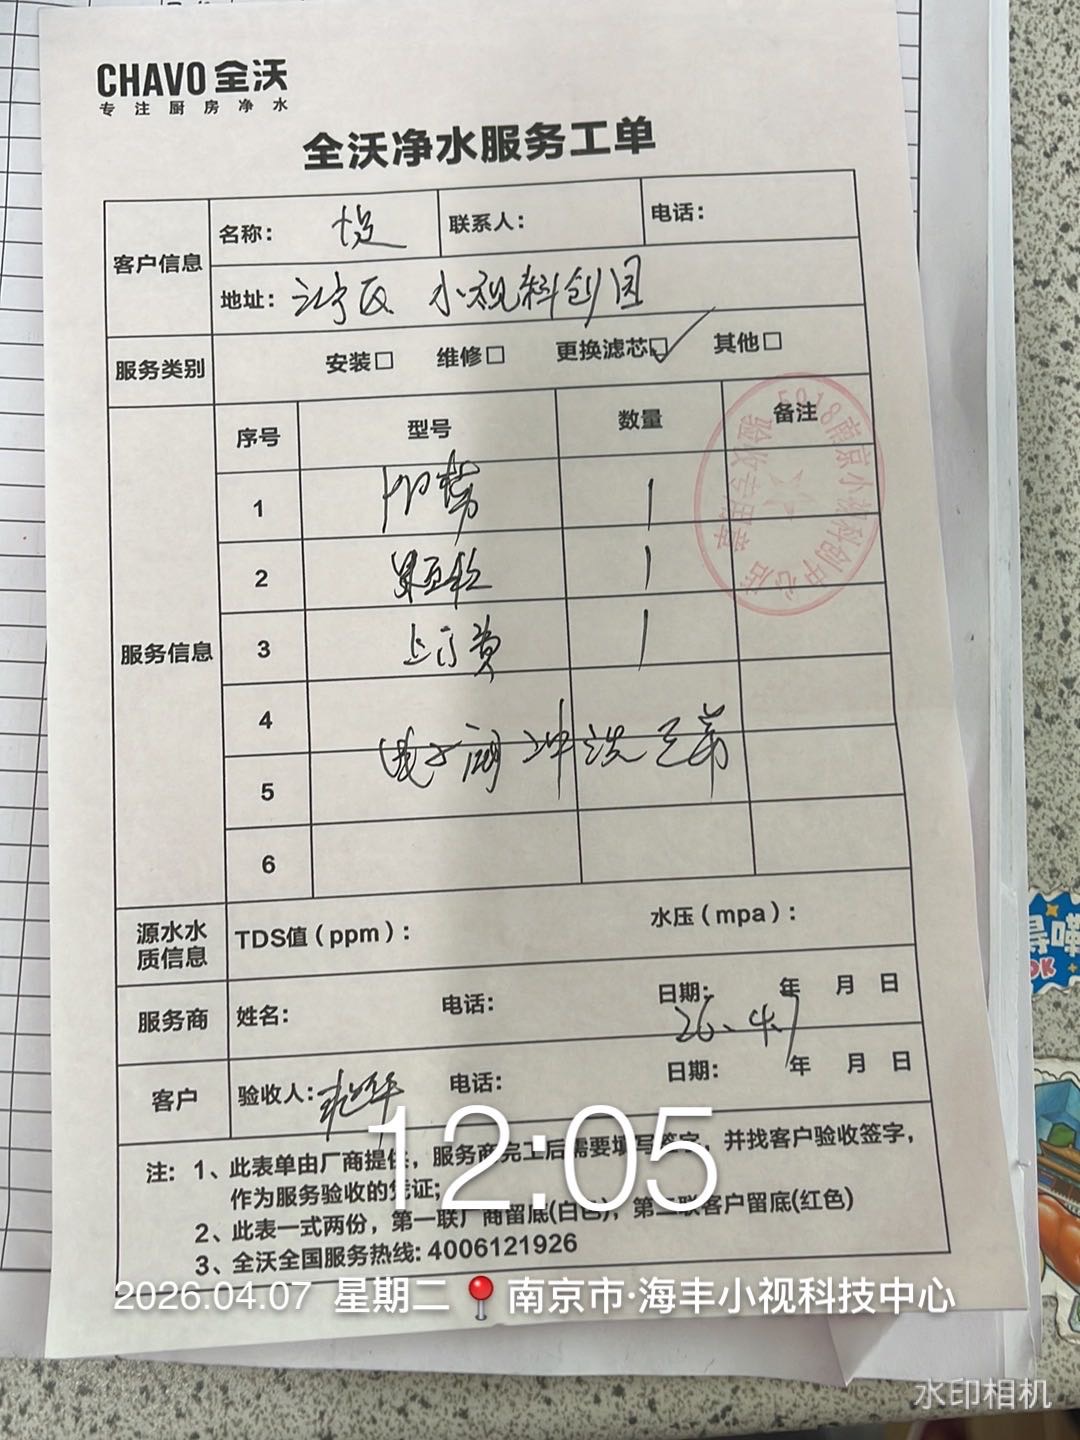 CHAVO 全沃
专注厨房净水
全沃净水服务工单
客户信息
名称：
联系人：
电话：
地址：江宁区 小视科创园
服务类别
安装□ 维修□ 更换滤芯□✓ 其他□
服务信息
序号 型号 数量 备注
1 1
2 颗粒 1
3 上门费 1
4
电子阀 冲洗
5
6
5018南京小视科创中心店
验收专用章
源水水质信息
TDS值（ppm）：
水压（mpa）：
服务商
姓名：
电话：
日期： 年 月 日
26.4.7
客户
验收人：
电话：
日期： 年 月 日
注：1、此表单由厂商提供，服务商完工后需要填写签字，并找客户验收签字，
作为服务验收的凭证；
2、此表一式两份，第一联厂商留底(白色)，第二联客户留底(红色)
3、全沃全国服务热线：4006121926
12:05
2026.04.07 星期二 南京市·海丰小视科技中心
水印相机